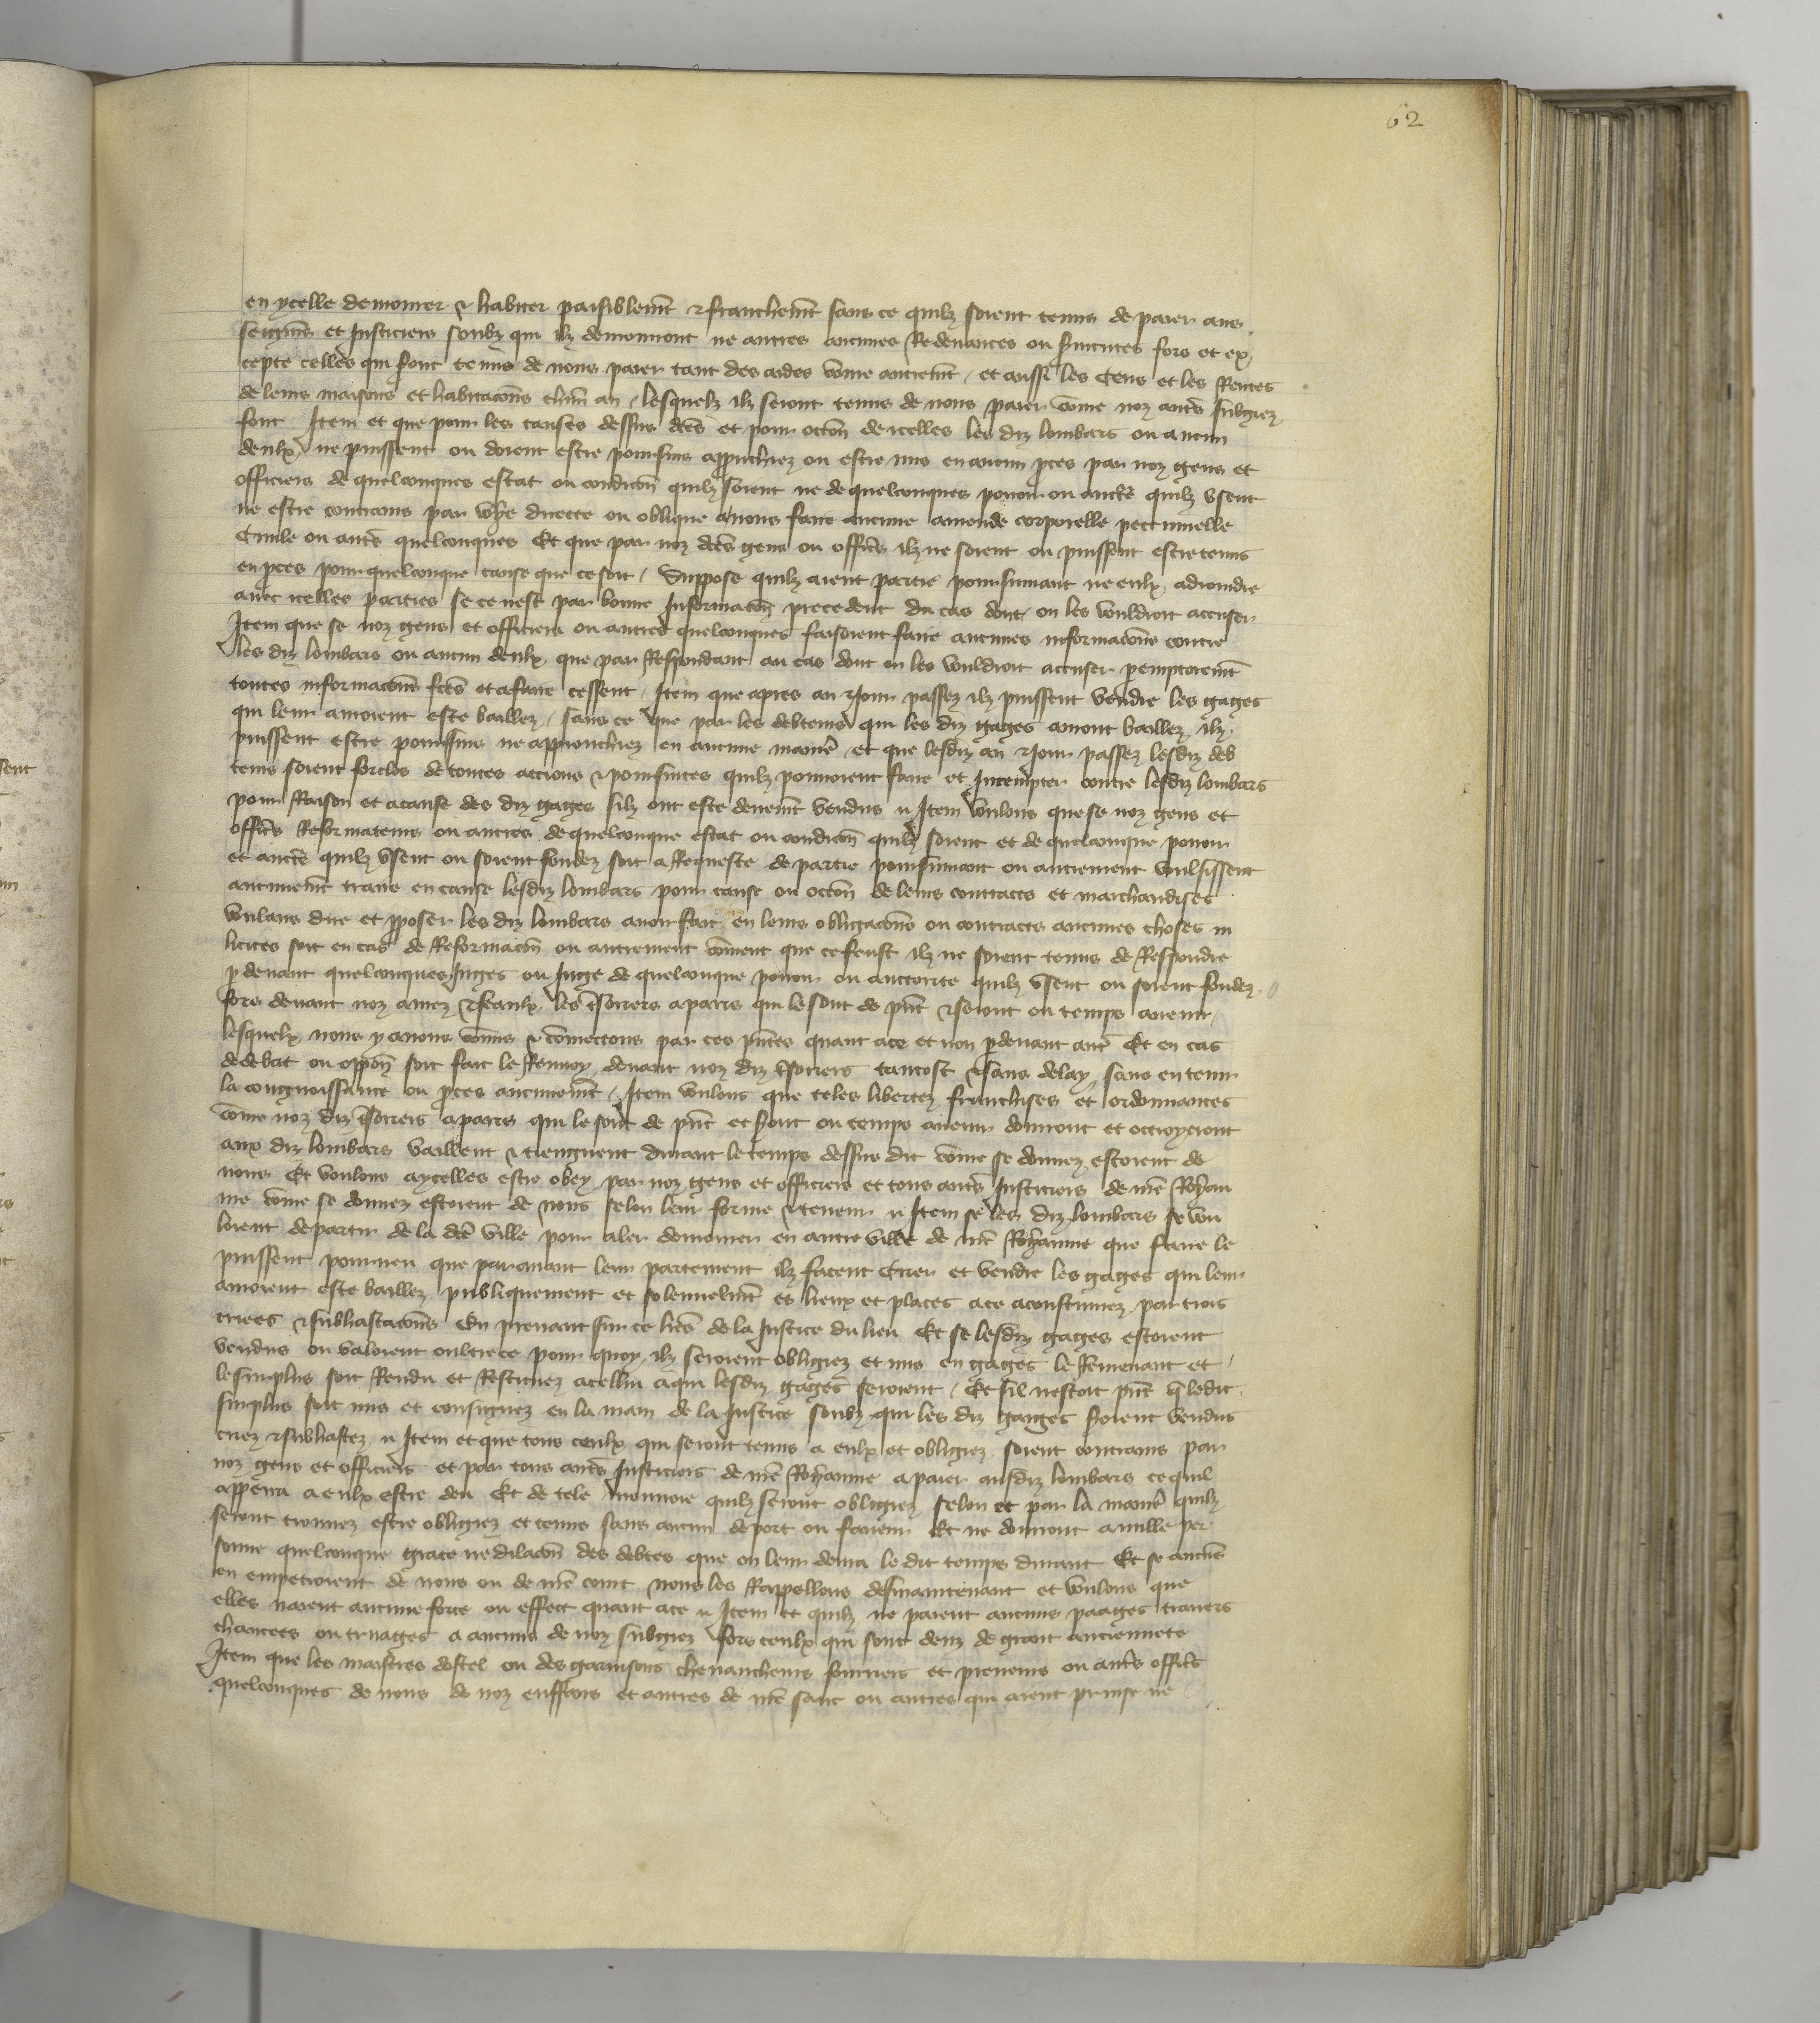 62
en ycelle demourer & habiter paisiblemt & franchemt sans ce quilz soient tenus de paier aus
seigns et Justiciers soubz qui ilz demourront ne autres aucunes Redevances ou servitutes fors et ex
cepte celles qui sont tenus de nous paier tant des aides cōme autremt / et aussi les Cens et les Rentes
de leurs maisons et habitacōns chun an / lesquelz ilz seront tenus de nous paier cōme noz autrs subgiez
font / Item et que pour les causes dessus dctēs et pour occōn de icelles les diz lombars ou aucun
deulx ne puissent ou doient estre poursuis approuchiez ou estre mis en aucun pces par noz gens et
officiers de quelconques estat ou condicōn quilz soient ne de quelconques povoir ou auctē quilz usent
ne estre contrains par voye directe ou oblique a nous faire aucune amende corporelle peccunielle
Civile ou autrē quelconques Et que par noz dctēs gens ou officrs ilz ne soient ou puissent estre tenus
en pces pour quelconque cause que ce soit / Suppose quilz aient partie poursuivant ne eulx adioindre
avec icelles parties se ce nest par bonne Informacōn precedent du cas dont on les vouldroit accuser
Item que se noz gens et officiers ou autres quelconques faisoient faire aucunes informacōns contre
les diz lombars ou aucun deulx que par Respondant au cas dont on les vouldroit accuser peremptoiremt
toutes informacōns fctēs et a faire cessent / Item que apres an & Jour passez ilz puissent vendre les gages
qui leur auroient este bailliez / sans ce que par les debteurs qui les diz gages auront bailliez ilz
puissent estre poursuis ne approuchiez en aucune manrē / et que lesdiz an & Jour passez lesdiz deb
teurs soient forclos de toutes accions & poursuites quilz pourroient faire et Intempter contre lesdiz lombars
pour Raison et a cause des diz gages silz ont este deuemt vendus // Item voulons que se noz gens et
officrs Reformateurs ou autres de quelconque estat ou condicōn quilz soient et de quelconque povoir
et auctē quilz usent ou soient fondez soit a Requeste de partie poursuivant ou autrement voulsissent
aucunemt traire en cause lesdiz lombars pour cause ou occōn de leurs contracts et marchandises
voulans dire et pposer les diz lombars avoir fait en leurs obligacōns ou contracts aucunes choses in
licites soit en cas de Reformacōn ou autrement cōment que ce feust ilz ne soient tenus de Respondre
p devant quelconques Juges ou Juge de quelconque povoir ou auctorite quilz usent ou soient fondez
fors devant noz amez & feaulx les tsoriers a paris qui le sont de pnt & seront ou temps avenir /
lesquelx nous y avons cōmis & cōmectons par ces pntes quant a ce et non pdevant autrē Et en cas
de debat ou oppōn soit fait le Renvoy devant noz diz tsoriers tantost & sans delay sans en tenir
la congnoissance ou pces aucunemt / Item voulons que teles libertez franchises et ordonnances
cōme noz diz tsoriers a paris qui le sont de pnt et seront ou temps avenir donront et octroyeront
aux diz lombars vaillent & tiengnent durant le temps dessus dit cōme se donnez estoient de
nous Et voulons a ycelles estre obey par noz gens et officiers et tous autrs Justiciers de nre Royau
me cōme se donnez estoient de nous selon leur forme & teneur // Item se les diz lombars se vou
loient departir de la dctē ville pour aler demourer en autre ville de nre Royaume que faire le
puissent pourveu que par avant leur partement ilz facent Crier et vendre les gages qui leur
auroient este bailliez publiquement et solennelmt es lieux et places a ce acoustumez par trois
criees & subhastacōns En prenant sur ce lictē de la Justice du lieu Et se lesdiz gages estoient
vendus ou valoient oultre ce pour quoy ilz seroient obligiez et mis en gages le Remenant et
le surplus soit Rendu et Restituez a cellui a qui lesdiz gages seroient / Et sil nestoit pnt q ledit
surplus soit mis et consignez en la main de la Justice soubz qui les diz gaiges seroient vendus
criez & subhastez // Item et que tous ceulx qui seront tenus a eulx et obligiez soient contrains par
noz gens et officiers et par tous autrs Justiciers de nre Royaume a paier ausdiz lombars ce quil
apperra a eulx estre deu Et de tele monnoie quilz seront obligiez selon et par la manrē quilz
seront trouvez estre obligiez et tenus sans aucun deport ou faveur Et ne donront a nulle per
sonne quelconque grace ne dilacōn des debtes que on leur devra le dit temps durant Et se aucunes
en empetroient de nous ou de nre court nous les Rappellons desmaintenant et voulons que
elles naient aucune force ou effect quant a ce // Item et quilz ne paient aucuns paages travers
chaucees ou truages a aucuns de noz subgiez fors ceulx qui sont deuz de grant anciennete
Item que les maistres dostel ou des garnisons chevaucheurs fourriers et preneurs ou autrs officrs
quelconques de nous de noz enffans et autres de nre sanc ou autres qui aient prinse ne